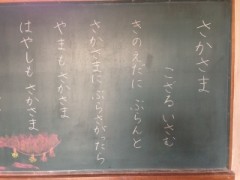 さかさま
こざる いさむ
きのえだに ぶらんと
さかさまに ぶらさがったら
やまも さかさま
はやしも さかさま